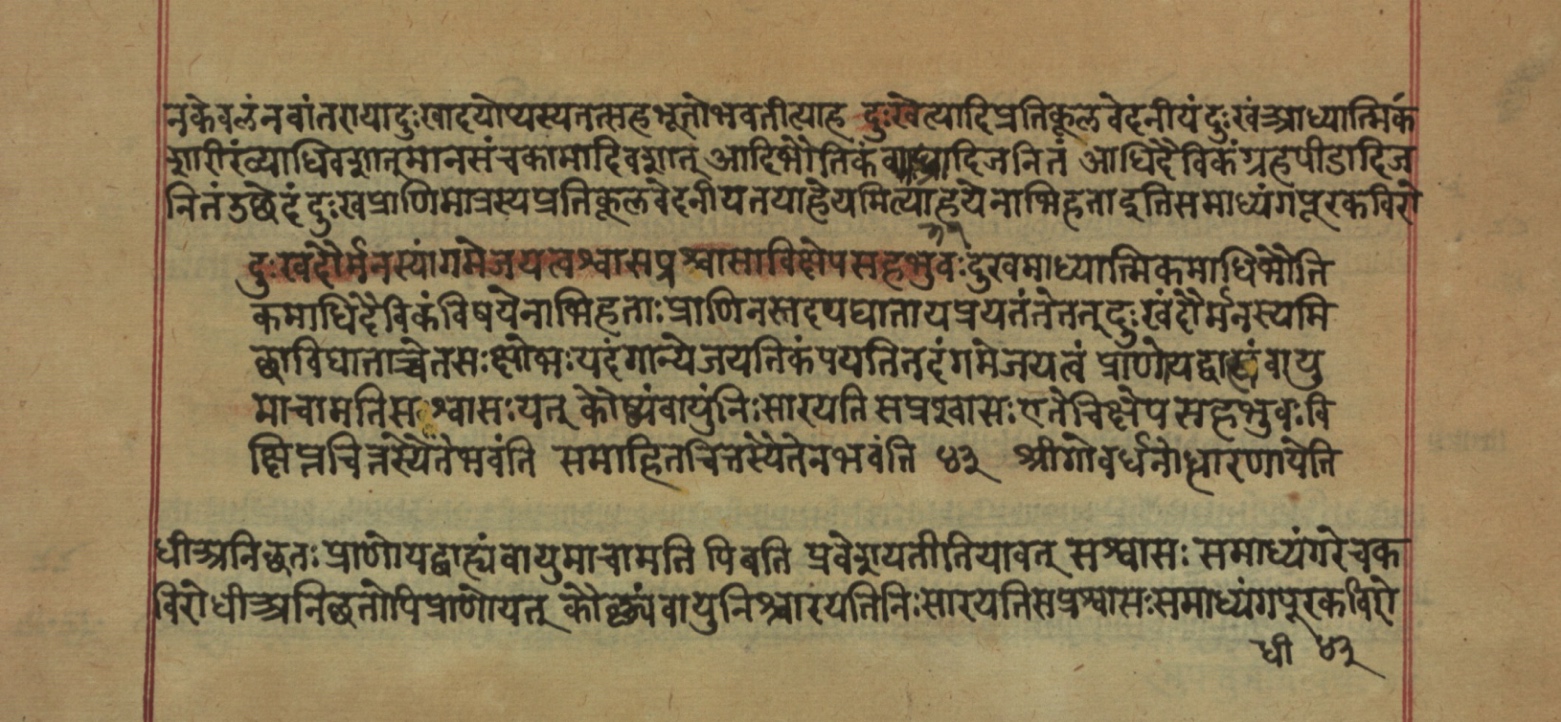 नकेवलंनवांतरायादुःखादयोप्यस्यतत्सहभूतोभवतीत्याह दुःखेत्यादिप्रतिकूलवेदनीयंदुःखंआध्यात्मिकं
शारीरंव्याधिवशात्मानसंचकामादिवशात् आदिभौतिकं व्याघ्रादिजनितं आधिदैविकंग्रहपीडादिज
नितंउछेदंदुःखप्राणिमात्रस्यप्रतिकूलवेदनीयतयाहेयमित्याहयेनाभिहताइतिसमाध्यंगपूरकविरो
दुःखदौर्मनस्यांगमेजयत्वश्वासप्रश्वासाविक्षेपसहभुवःदुखमाध्यात्मिकमाधिभौति
कमाधिदैविकंविषयेनाभिहताःप्राणिनस्तदपघातायप्रयतंतेतत्दुःखंदौर्मनस्यमि
छाविघाताच्चेतसःक्षोभःयदंगान्येजयतिकंपयतितदंगमेजयत्वं प्राणोयद्वाह्यंवायु
माचामतिसश्वासःयत् कौष्ठ्यंवायुंनिःसारयति सप्रश्वासःएतेचिक्षेप सहभुवःवि
क्षिप्तचित्तस्यैतेभवंति समाहितचित्तस्येतेनभवंति ४३ श्रीगोवर्धनोधारणायेति
धीअनिछतःप्राणोयद्वाह्यंवायुमाचामति पिबति प्रवेशयतीतियावत् सश्वासः समाध्यंगरेचक
विरोधीअनिछतोपिप्राणोयत् कौष्ठ्यंवायुनिश्चारयतिनिःसारयतिसप्रश्वासःसमाध्यंगपूरकविरो
धी ४३